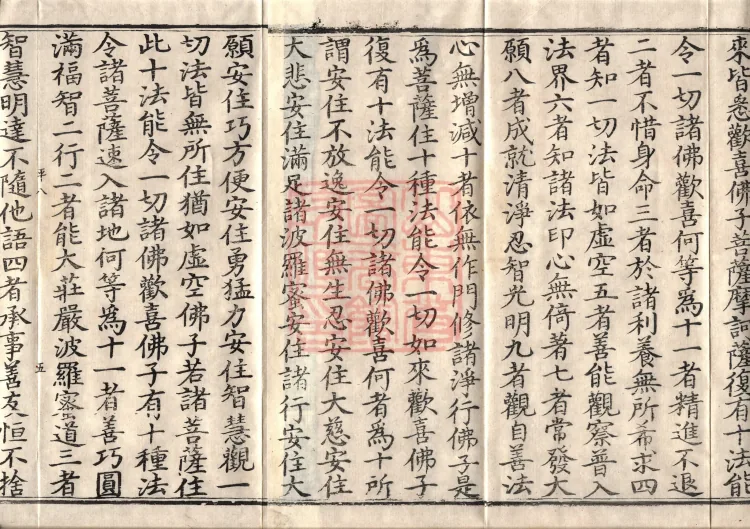 來皆悉歡喜佛子菩薩摩訶薩復有十法能
令一切諸佛歡喜何等為十一者精進不退
二者不惜身命三者於諸利養無所希求四
者知一切法皆如虛空五者善能觀察普入
法界六者知諸法印心無倚著七者常發大
願八者成就清淨忍智光明九者觀自善法
心無增減十者依無作門修諸淨行佛子是
為菩薩住十種法能令一切如來歡喜佛子
復有十法能令一切諸佛歡喜何者為十所
謂安住不放逸安住無生忍安住大慈安住
大悲安住滿足諸波羅蜜安住諸行安住大
願安住巧方便安住勇猛力安住智慧觀一
切法皆無所住猶如虛空佛子若諸菩薩住
此十法能令一切諸佛歡喜佛子有十種法
令諸菩薩速入諸地何等為十一者善巧圓
滿福智二行二者能大莊嚴波羅蜜道三者
智慧明達不隨他語四者承事善友恒不捨
平八
五